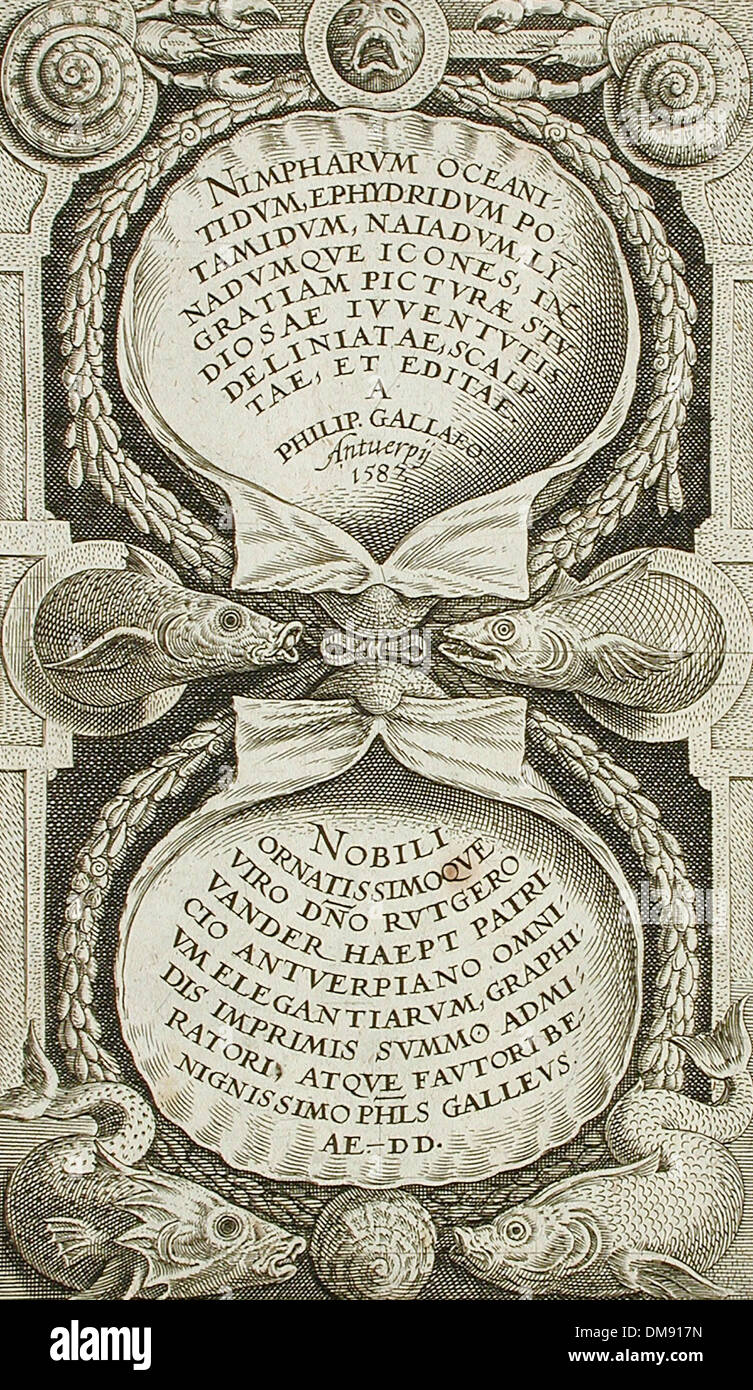 NIMPHARVM OCEANI-
TIDVM, EPHYDRIDVM PO-
TAMIDVM, NAIADVM, LY-
NADVMQVE ICONES, IN
GRATIAM PICTVRÆ STV
DIOSAE IVVENTVTIS
DELINIATAE, SCALP
TAE, ET EDITAE,
A
PHILIP. GALLAEO
Antuerpij
158
NOBILI
ORNATISSIMOQVE
VIRO DÑO RVTGERO
VANDER HAEPT PATRI
CIO ANTVERPIANO OMNI-
VM ELEGANTIARVM, GRAPHI-
DIS IMPRIMIS SVMMO ADMI-
RATORI, ATQVE FAVTORI BE-
NIGNISSIMO PHLS GALLEVS.
AE-DD.
alamy stock photo
DM917N
www.alamy.com